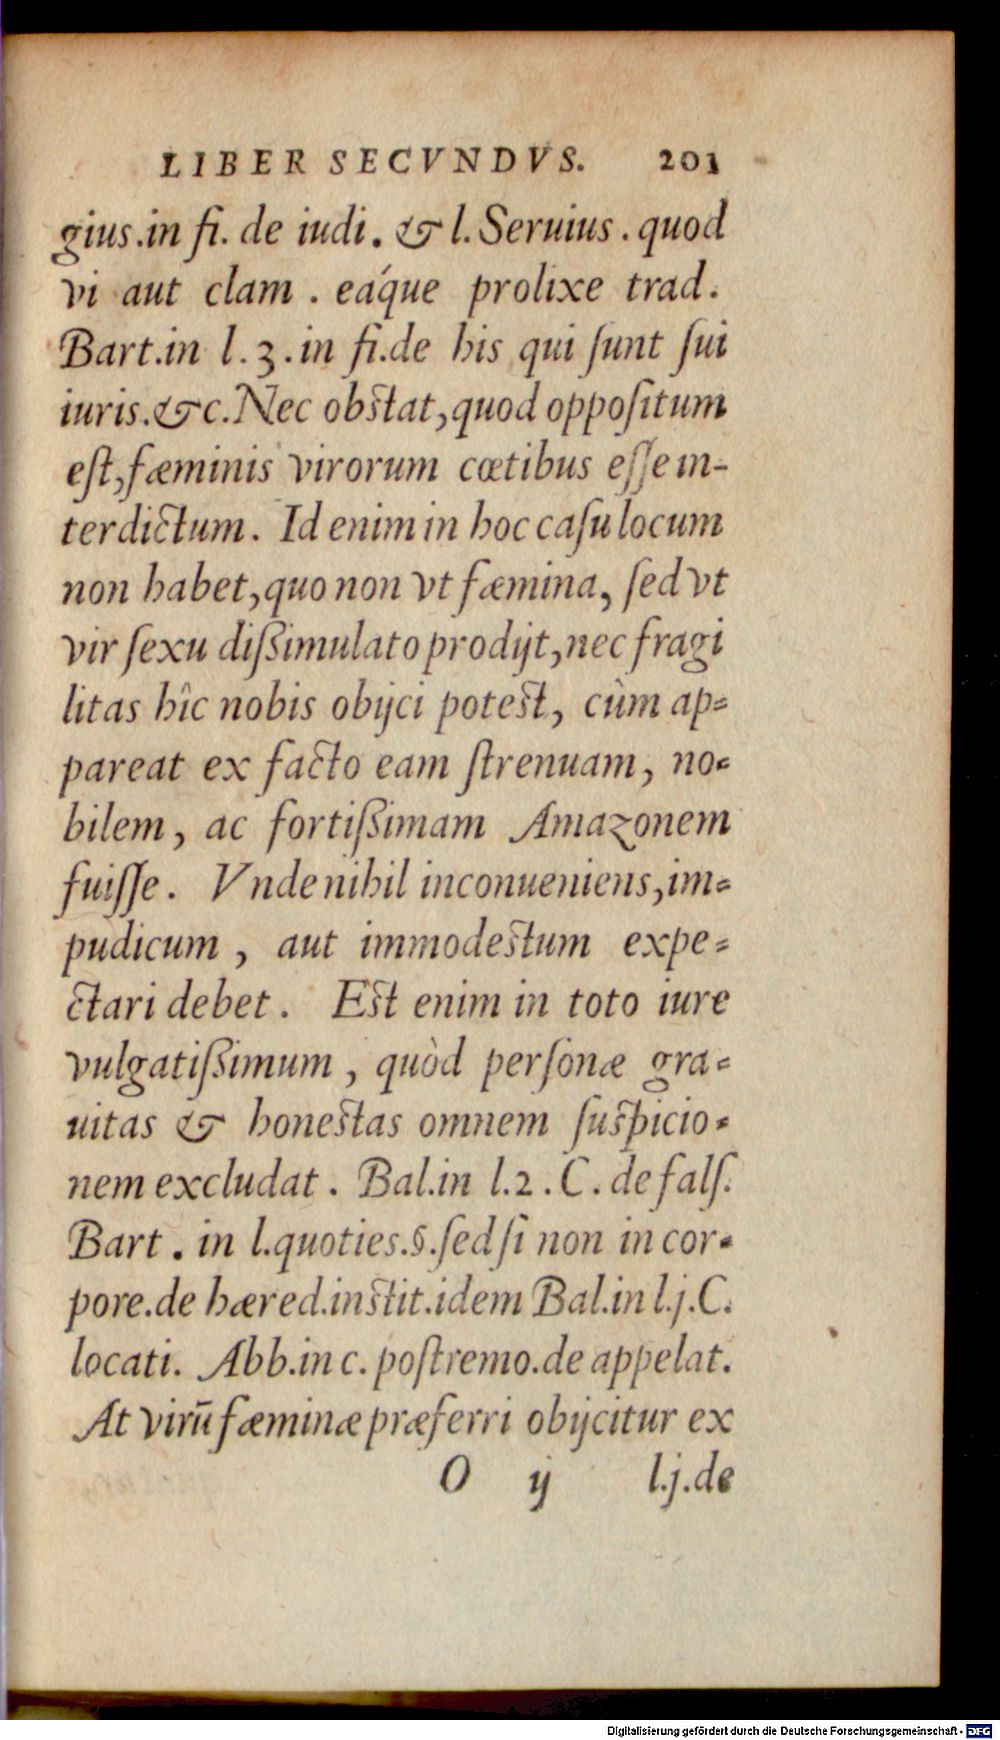 LIBER SECVNDVS. 201
gius.in fi. de iudi. & l. Seruius. quod
vi aut clam. eáque prolixe trad.
Bart.in l. 3. in fi.de his qui ſunt ſui
iuris.&c. Nec obſtat, quod oppoſitum
eſt, fæminis virorum cœtibus eſſe in-
terdictum. Id enim in hoc caſu locum
non habet, quo non vt fæmina, ſed vt
vir ſexu dißimulato prodijt, nec fragi
litas hîc nobis obijci poteſt, cùm ap-
pareat ex facto eam ſtrenuam, no-
bilem, ac fortißimam Amazonem
fuiſſe. Vnde nihil inconueniens, im-
pudicum, aut immodeſtum expe-
ctari debet. Eſt enim in toto iure
vulgatißimum, quòd perſonæ gra-
uitas & honeſtas omnem ſuſpicio-
nem excludat. Bal.in l.2. C. de falſ.
Bart. in l.quoties.§.ſed ſi non in cor-
pore.de hæred.inſtit.idem Bal.in l.j.C.
locati. Abb.in c. poſtremo.de appelat.
At virũ fæminæ præferri obijcitur ex
O ij l.j.de
Digitalisierung gefördert durch die Deutsche Forschungsgemeinschaft - DFG